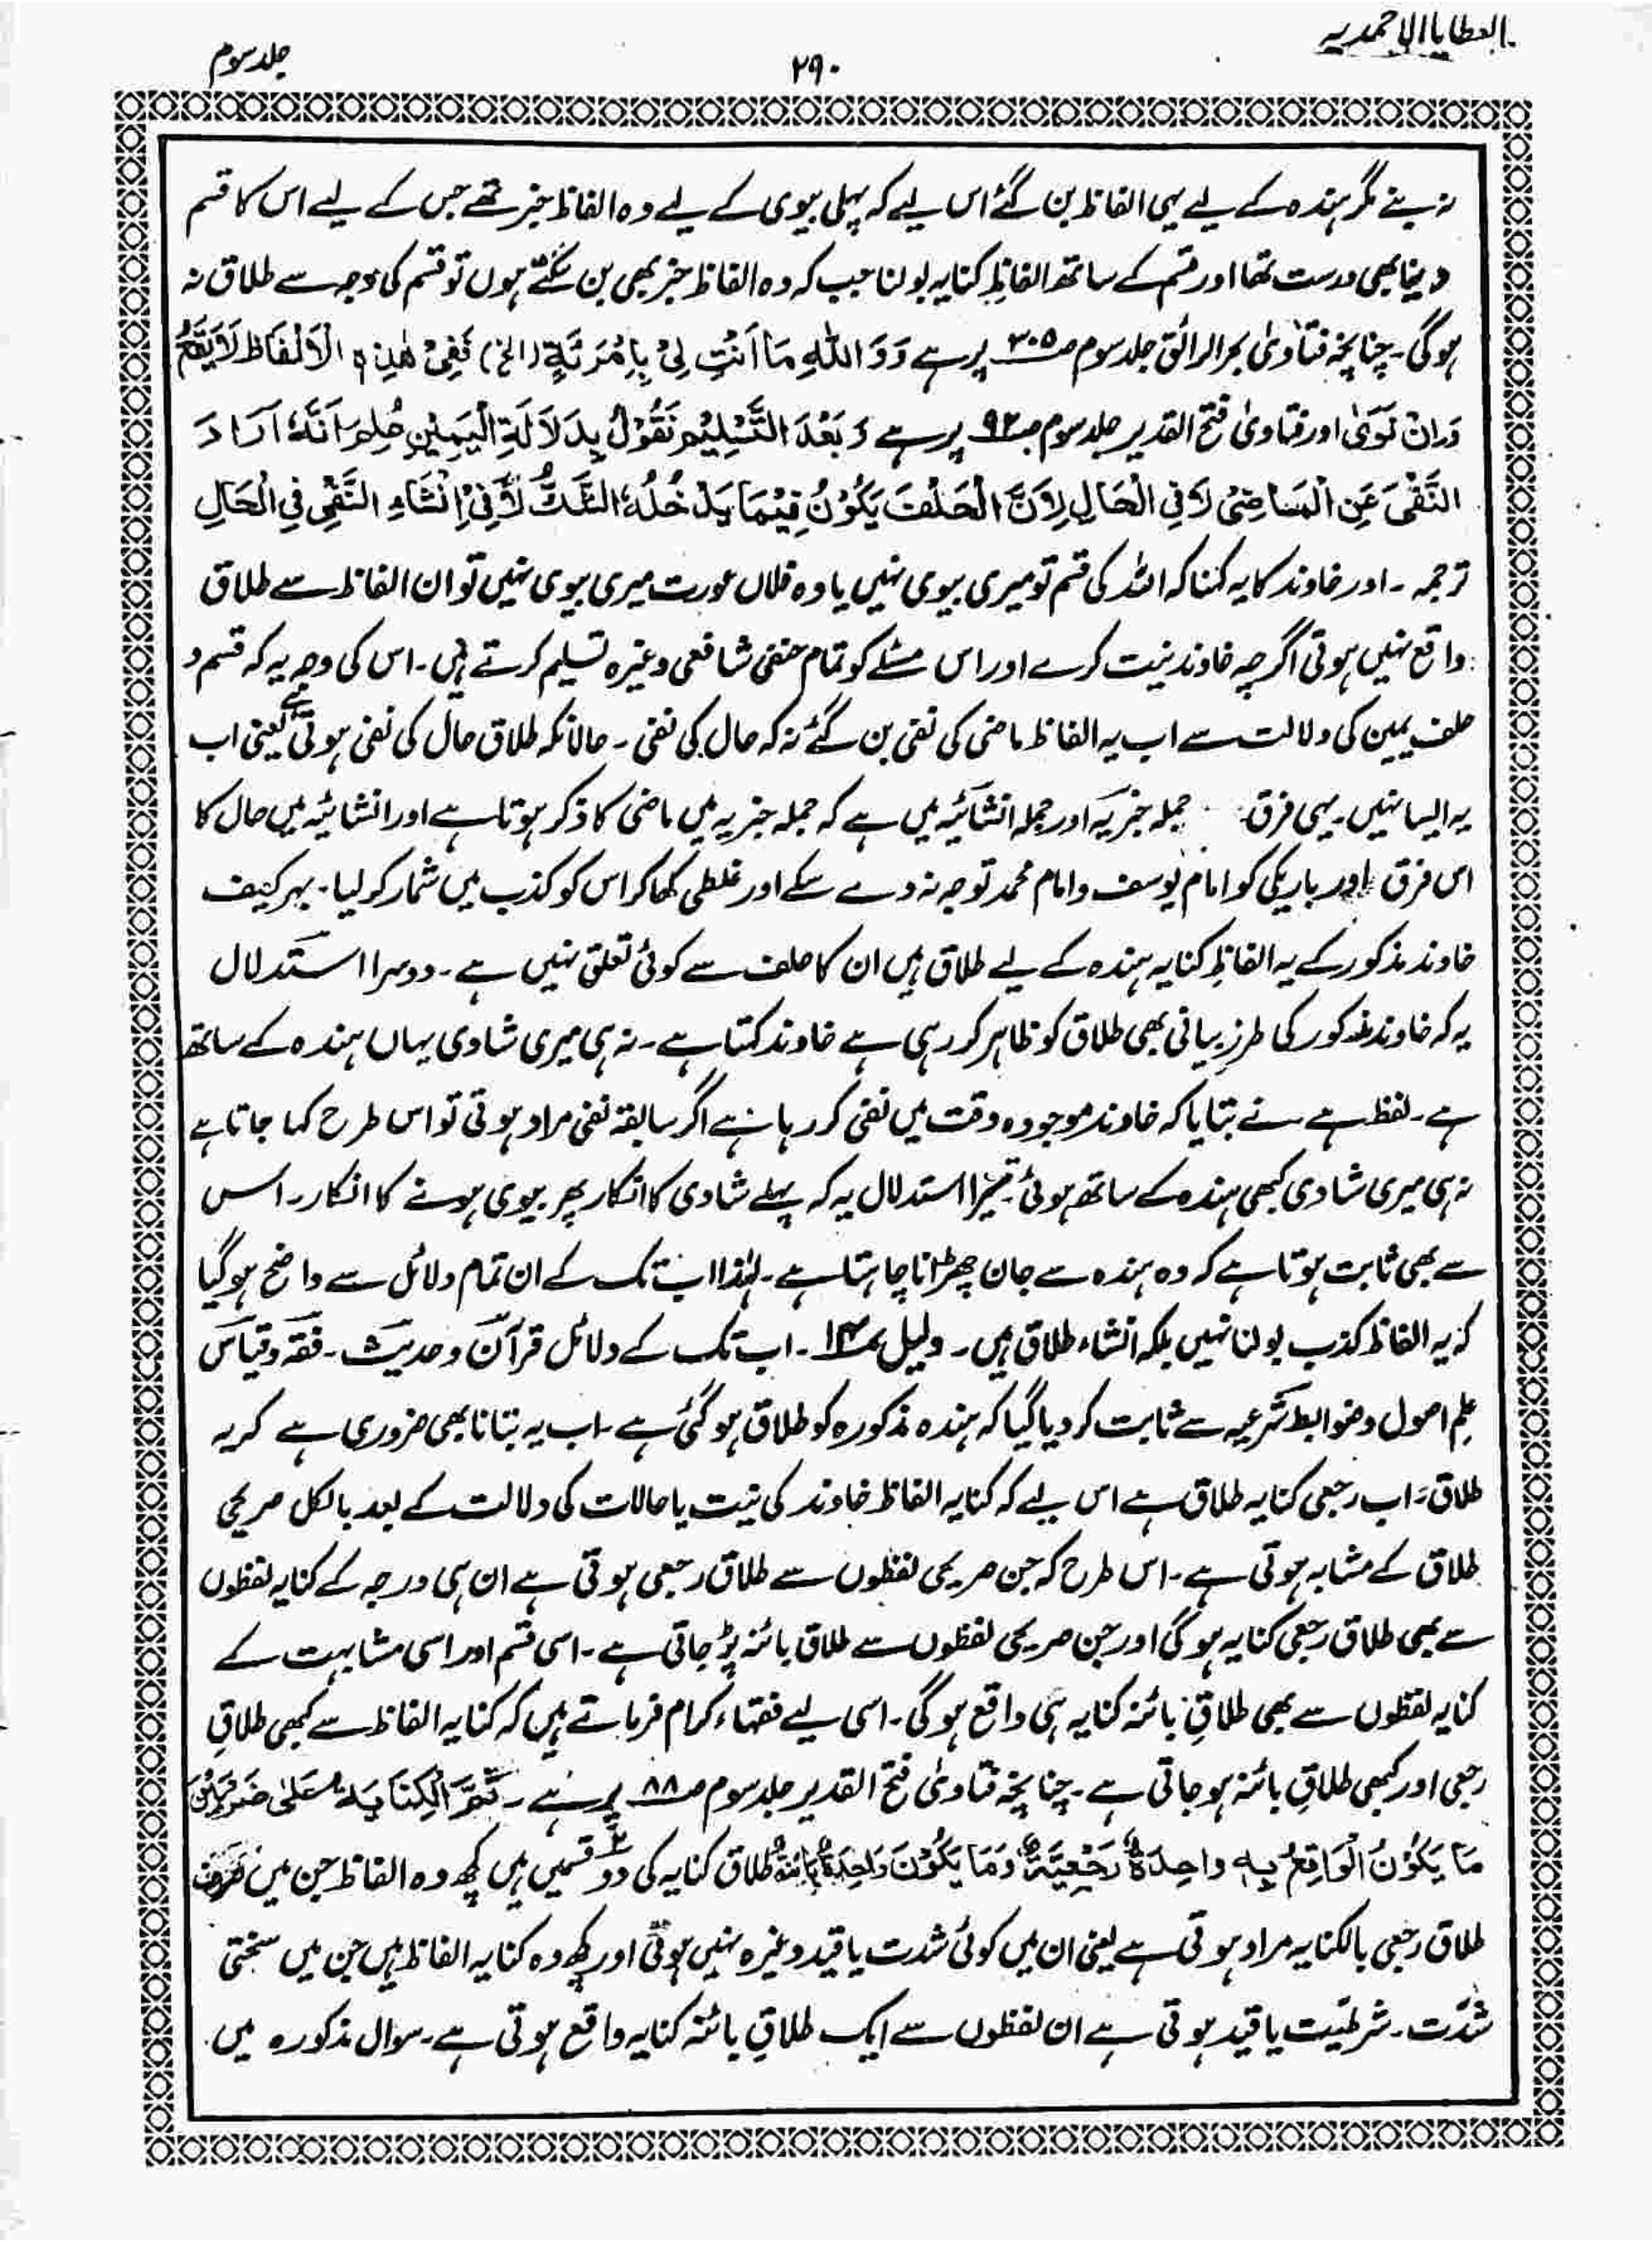 العطایا الاحمدیہ
۲۹۰
جلد سوم
نہ بنے مگر ہندہ کے لیے یہی الفاظ بن گئے اس لیے کہ پہلی بیوی کے لیے وہ الفاظ خبر تھے جس کے لیے اس کا قسم
دینا بھی درست تھا اور قسم کے ساتھ الفاظِ کنایہ بولنا جب کہ وہ الفاظ خبر بھی بن سکتے ہوں تو قسم کی وجہ سے طلاق نہ
ہوگی۔ چنانچہ فتاویٰ بحر الرائق جلد سوم صـ۳۰۵ پر ہے وَوَ اللّٰہِ مَا اَنْتِ لِیْ بِاِمْرَئَۃٍ (الخ) فَفِیْ ھٰذِہِ الْاَلْفَاظِ لَا یَقَعُ
وَاِنْ نَوٰی اور فتاویٰ فتح القدیر جلد سوم صـ۹۲ پر ہے وَبَعْدَ التَّسْلِیْمِ نَقُوْلُ بِدَلَالَۃِ الْیَمِیْنِ عُلِمَ اَنَّہٗ اَرَادَ
النَّفْیَ عَنِ الْمَاضِیْ لَا فِی الْحَالِ لِاَنَّ الْحَلْفَ یَکُوْنُ فِیْمَا یَدْخُلُہُ الشَّکُّ لَا فِیْ اِنْشَاءِ النَّفْیِ فِی الْحَالِ
ترجمہ۔ اور خاوند کا یہ کہنا کہ اللہ کی قسم تو میری بیوی نہیں یا وہ فلاں عورت میری بیوی نہیں تو ان الفاظ سے طلاق
واقع نہیں ہوتی اگرچہ خاوند نیت کرے اور اس مسئلے کو تمام حنفی شافعی وغیرہ تسلیم کرتے ہیں۔ اس کی وجہ یہ کہ قسم و
حلف یمین کی دلالت سے اب یہ الفاظ ماضی کی نفی بن گئے نہ کہ حال کی نفی۔ حالانکہ طلاق حال کی نفی ہوتی ہے یعنی اب
یہ ایسا نہیں۔ یہی فرق جملہ خبریہ اور جملہ انشائیہ میں ہے کہ جملہ خبریہ میں ماضی کا ذکر ہوتا ہے اور انشائیہ میں حال کا
اس فرق اور باریکی کو امام یوسف و امام محمد توجہ نہ دے سکے اور غلطی کھا کر اس کو کذب میں شمار کر لیا۔ بہر کیف
خاوند مذکور کے یہ الفاظِ کنایہ ہندہ کے لیے طلاق ہیں ان کا حلف سے کوئی تعلق نہیں ہے۔ دوسرا استدلال
یہ کہ خاوند مذکور کی طرزِ بیانی بھی طلاق کو ظاہر کر رہی ہے خاوند کہتا ہے۔ نہ ہی میری شادی یہاں ہندہ کے ساتھ
ہے۔ لفظ ہے نے بتایا کہ خاوند موجودہ وقت میں نفی کر رہا ہے اگر سابقہ نفی مراد ہوتی تو اس طرح کہا جاتا ہے
نہ ہی میری شادی کبھی ہندہ کے ساتھ ہوئی۔ تیسرا استدلال یہ کہ پہلے شادی کا انکار پھر بیوی ہونے کا انکار۔ اس
سے بھی ثابت ہوتا ہے کہ وہ ہندہ سے جان چھڑانا چاہتا ہے۔ لہٰذا اب تک کے ان تمام دلائل سے واضح ہو گیا
کہ یہ الفاظ کذب بولنا نہیں بلکہ انشاء طلاق ہیں۔ دلیل ۔ اب تک کے دلائل قرآن و حدیث۔ فقہ و قیاس
علمِ اصول و ضوابط شرعیہ سے ثابت کر دیا گیا کہ ہندہ مذکورہ کو طلاق ہو گئی ہے۔ اب یہ بتانا بھی ضروری ہے کہ یہ
طلاق، اب رجعی کنایہ طلاق ہے اس لیے کہ کنایہ الفاظ خاوند کی نیت یا حالات کی دلالت کے بعد بالکل صریحی
طلاق کے مشابہ ہوتی ہے۔ اس طرح کہ جن صریحی لفظوں سے طلاق رجعی ہوتی ہے ان ہی درجہ کے کنایہ لفظوں
سے بھی طلاق رجعی کنایہ ہوگی اور جن صریحی لفظوں سے طلاق بائنہ پڑ جاتی ہے۔ اسی قسم اور اسی مشابہت کے
کنایہ لفظوں سے بھی طلاقِ بائنہ کنایہ ہی واقع ہوگی۔ اسی لیے فقہاء کرام فرماتے ہیں کہ کنایہ الفاظ سے کبھی طلاقِ
رجعی اور کبھی طلاقِ بائنہ ہو جاتی ہے۔ چنانچہ فتاویٰ فتح القدیر جلد سوم صـ۸۸ پر ہے۔ ثُمَّ الْکِنَایَۃُ عَلٰی ضَرْبَیْنِ
مَا یَکُوْنُ الْوَاقِعُ بِہٖ وَاحِدَۃٌ رَجْعِیَّۃٌ وَمَا یَکُوْنُ وَاحِدَۃٌ بَائِنَۃٌ طلاق کنایہ کی دو قسمیں ہیں کچھ وہ الفاظ جن میں صرف
طلاق رجعی بالکنایہ مراد ہوتی ہے یعنی ان میں کوئی شدت یا قید وغیرہ نہیں ہوتی اور کچھ وہ کنایہ الفاظ ہیں جن میں سختی
شدّت۔ شرطیّت یا قید ہوتی ہے ان لفظوں سے ایک طلاقِ بائنہ کنایہ واقع ہوتی ہے۔ سوال مذکورہ میں